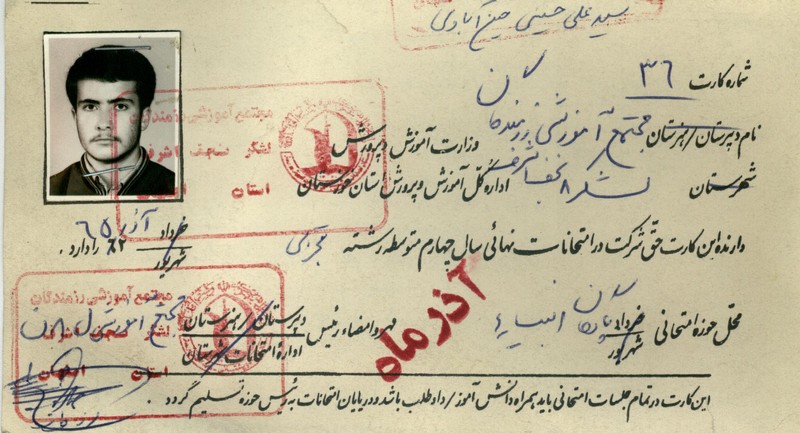 سید علی حسینی
شماره کارت ۳۶
نام دبیرستان / هنرستان مجتمع آموزشی رزمندگان وزارت آموزش و پرورش
شهرستان لشکر ۸ نجف اشرف اداره کل آموزش و پرورش استان خوزستان
دارنده این کارت حق شرکت در امتحانات نهائی سال چهارم متوسطه رشته تجربی خرداد آذر ۶۵
شهریور ۶۲ را دارد .
محل حوزه امتحانی خرداد
شهریور پادگان انبیاء
مهر و امضاء رئیس دبیرستان / هنرستان
اداره امتحانات شهرستان
آذر ماه
این کارت در تمام جلسات امتحانی باید همراه دانش آموز / داوطلب باشد و در پایان امتحانات به رئیس حوزه تسلیم گردد .
مجتمع آموزشی رزمندگان
لشگر نجف اشرف
استان اصفهان
مجتمع آموزشی رزمندگان
لشگر نجف اشرف
استان اصفهان